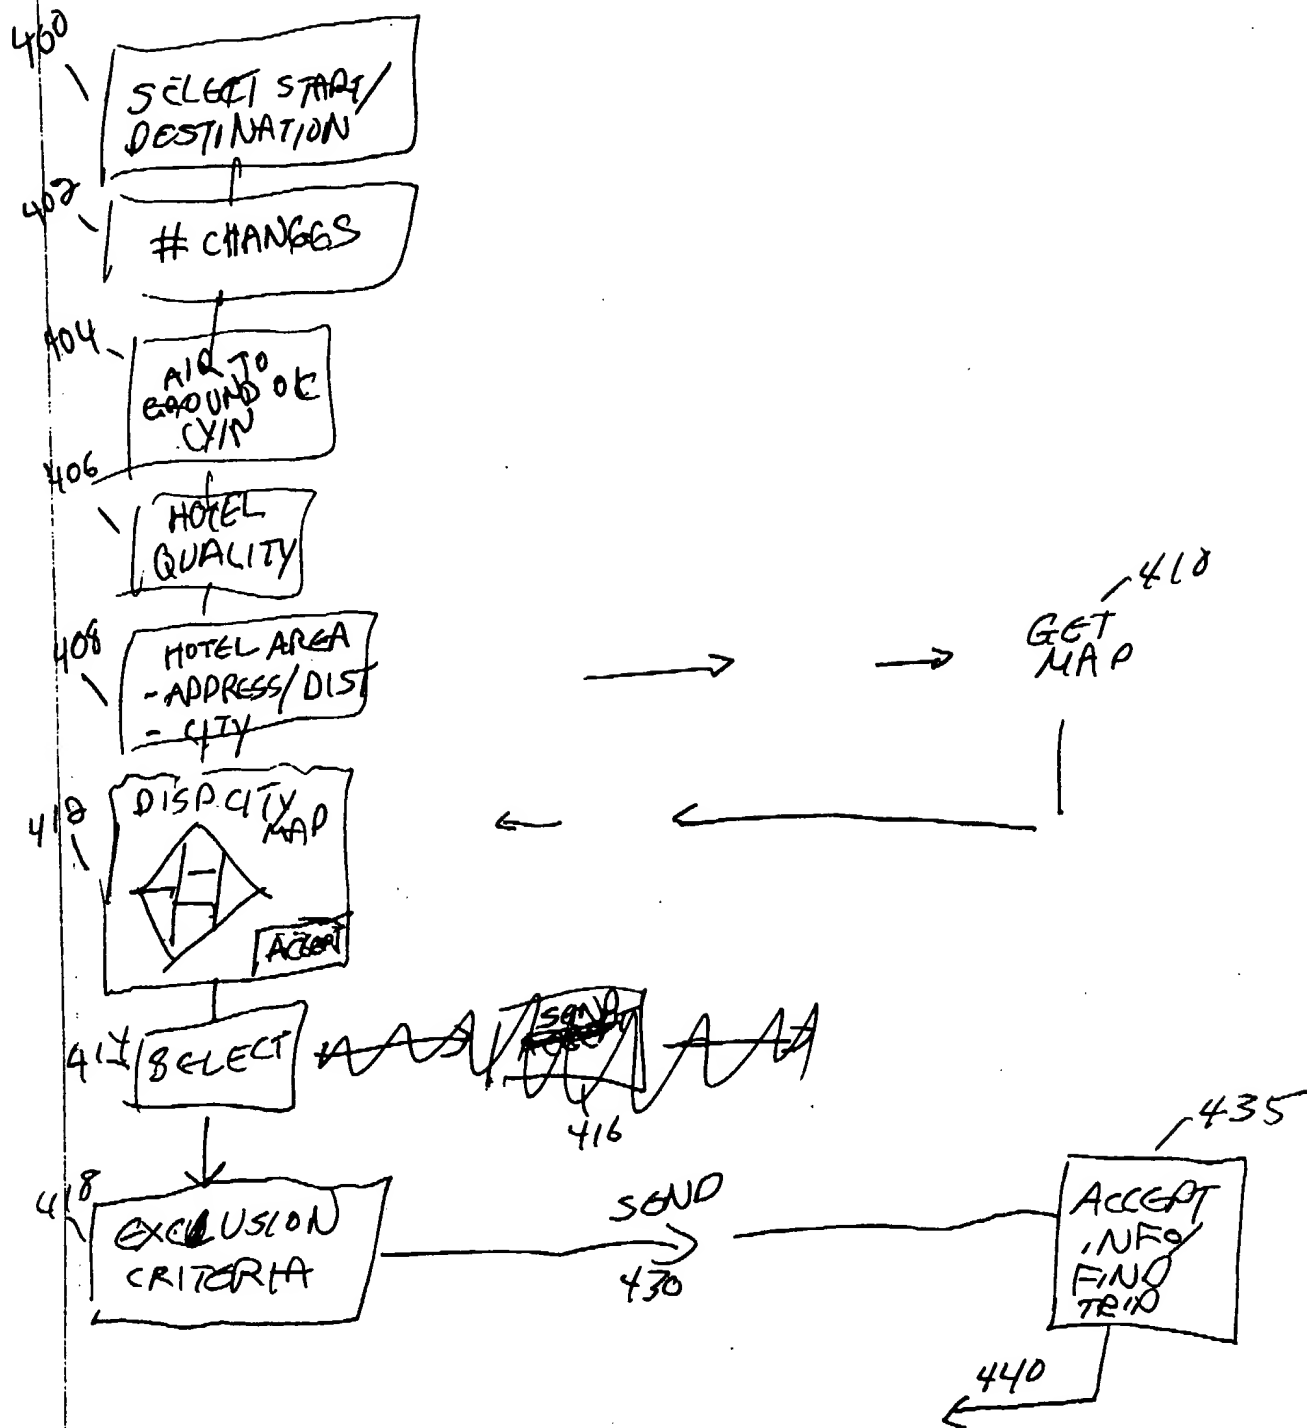 400
SELECT START/
DESTINATION
402
# CHANGES
404
AIR TO
GROUND OK
(Y/N
406
HOTEL
QUALITY
408
HOTEL AREA
- ADDRESS/DIST
- CITY
410
GET
MAP
412
DISP. CITY
MAP
ACCEPT
414
SELECT
SEND
416
418
EXCLUSION
CRITERIA
SEND
430
435
ACCEPT
INFO/
FIND
TRIP
440